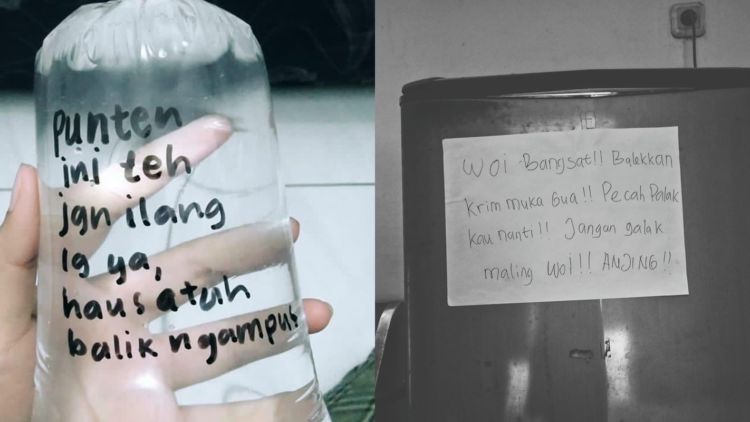 punten
ini teh
jgn ilang
lg ya,
haus atuh
balik ngampus
Woi Bangsat!! Balekkan
krim muka Gua!! Pecah Palak
kau nanti!! Jangan galak
maling woi!! ANJING!!